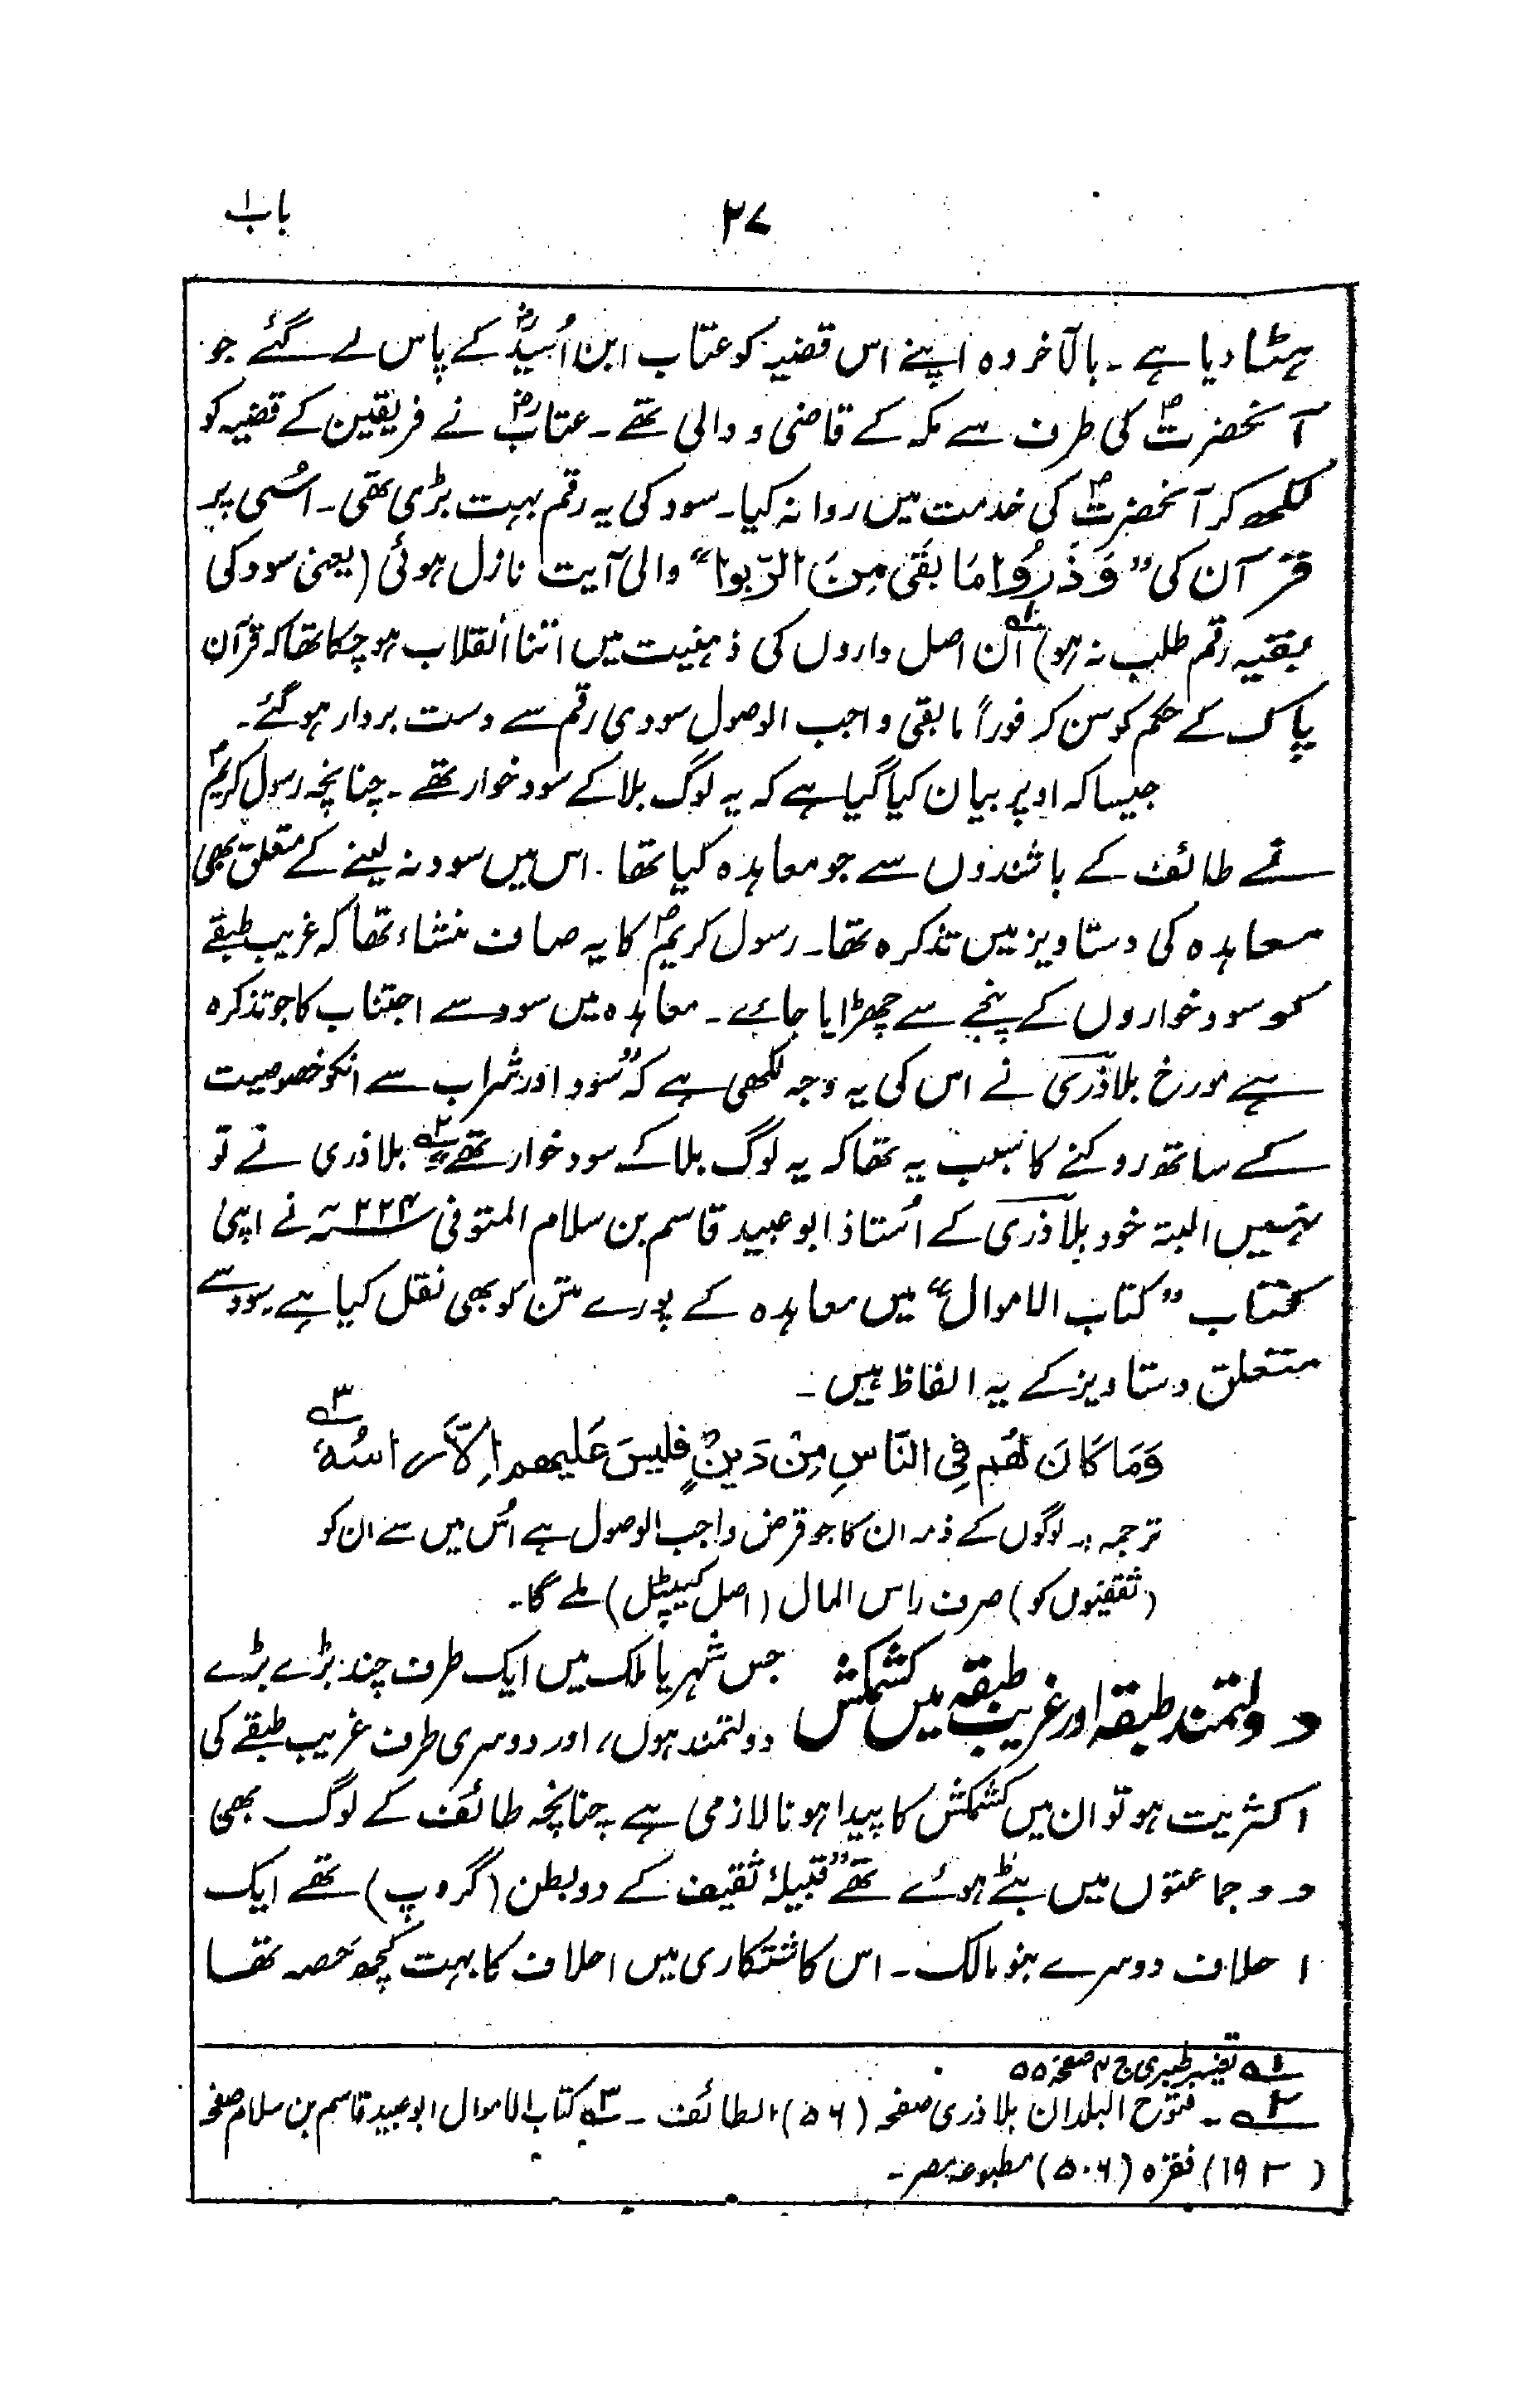 باب ۱
۲۷
ہٹا دیا ہے ۔ بالآخر وہ اپنے اس قضیہ کو عتاب ابن اُسَیدؓ کے پاس لے گئے جو
آنحضرتؐ کی طرف سے مکہ کے قاضی و والی تھے ۔ عتابؓ نے فریقین کے قضیہ کو
لکھ کر آنحضرتؐ کی خدمت میں روانہ کیا ۔ سود کی یہ رقم بہت بڑی تھی ۔ اسُی پر
قرآن کی ”وَذَرُوا مَا بَقَیَ مِنَ الرّبوا“ والی آیت نازل ہوئی (یعنی سود کی
بقیہ رقم طلب نہ ہو)۱؎ ان اصل داروں کی ذہنیت میں اتنا انقلاب ہو چکا تھا کہ قرآن
پاک کے حکم کو سن کر فوراً مابقی واجب الوصول سودی رقم سے دست بردار ہو گئے ۔
جیسا کہ اوپر بیان کیا گیا ہے کہ یہ لوگ بلا کے سود خوار تھے ۔ چنانچہ رسول کریمؐ
نے طائف کے باشندوں سے جو معاہدہ کیا تھا ۔ اس میں سود نہ لینے کے متعلق بھی
معاہدہ کی دستاویز میں تذکرہ تھا ۔ رسول کریمؐ کا یہ صاف منشاء تھا کہ غریب طبقے
کو سود خواروں کے پنجے سے چھڑایا جائے ۔ معاہدہ میں سود سے اجتناب کا جو تذکرہ
ہے مورخ بلاذری نے اس کی یہ وجہ لکھی ہے کہ ”سود اور شراب سے انکو خصوصیت
کے ساتھ روکنے کا سبب یہ تھا کہ یہ لوگ بلا کے سود خوار تھے“۲؎ بلاذری نے تو
نہیں البتہ خود بلاذری کے اُستاذ ابو عبید قاسم بن سلام المتوفی ۲۲۴؁ھ نے اپنی
کتاب ”کتاب الاموال“ میں معاہدہ کے پورے متن کو بھی نقل کیا ہے سود سے
متعلق دستاویز کے یہ الفاظ ہیں ۔
وَمَا کَانَ لَھُم فِی النَّاسِ مِنْ دَینٍ فلیسَ عَلیھم اِلاَّ راسُہ۳؎
ترجمہ :۔ لوگوں کے ذمہ ان کا جو قرض واجب الوصول ہے اُس میں سے ان کو
(ثقفیوں کو) صرف راس المال (اصل کیپٹل) ملے گا ۔
دولتمند طبقہ اور غریب طبقہ میں کشمکش جس شہر یا ملک میں ایک طرف چند بڑے بڑے
دولتمند ہوں ، اور دوسری طرف غریب طبقے کی
اکثریت ہو تو ان میں کشمکش کا پیدا ہونا لازمی ہے چنانچہ طائف کے لوگ بھی
دو جماعتوں میں بٹے ہوئے تھے ”قبیلۂ ثقیف کے دو بطن (گروپ) تھے ایک
احلاف دوسرے بنو مالک ۔ اس کاشتکاری میں احلاف کا بہت کچھ حصہ تھا
۱؎ تفسیر طبری ج صفحہ ۵۵
۲؎ ۔ فتوح البلدان بلاذری صفحہ (۵۶) الطائف ۔ ۳؎ کتاب الاموال ابو عبید قاسم بن سلام صفحہ
(۱۹۳) فقرہ (۵۰۶) مطبوعہ مصر ۔